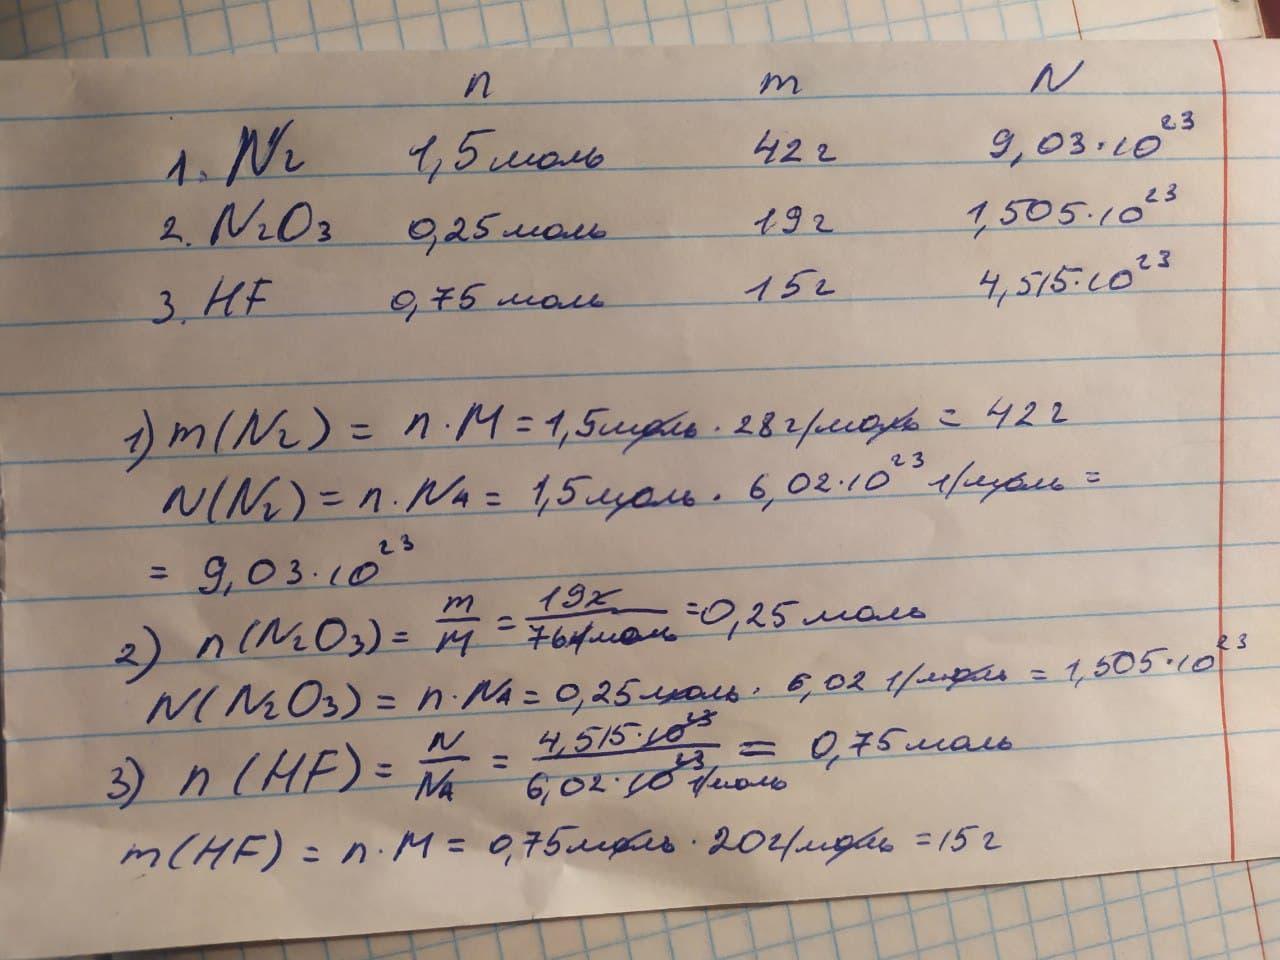 n m N
1. N₂ 1,5 моль 42 г 9,03·10²³
2. N₂O₃ 0,25 моль 19 г 1,505·10²³
3. HF 0,75 моль 15 г 4,515·10²³
1) m(N₂) = n·M = 1,5 моль · 28 г/моль = 42 г
N(N₂) = n·NA = 1,5 моль · 6,02·10²³ 1/моль =
= 9,03·10²³
2) n(N₂O₃) = m/M = 19г/76г/моль = 0,25 моль
N(N₂O₃) = n·NA = 0,25 моль · 6,02 1/моль = 1,505·10²³
3) n(HF) = N/NA = 4,515·10²³/6,02·10²³ 1/моль = 0,75 моль
m(HF) = n·M = 0,75 моль · 20 г/моль = 15 г